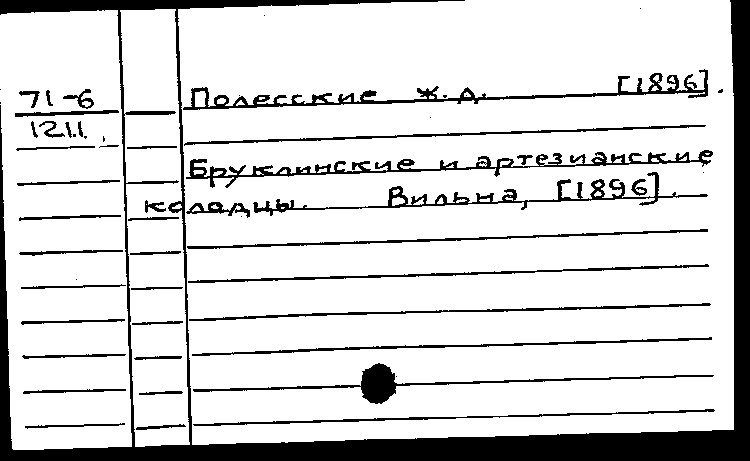 71-6
1211
Полесские ж.д. [1896].
Бруклинские и артезианские
колодцы. Вильна, [1896].